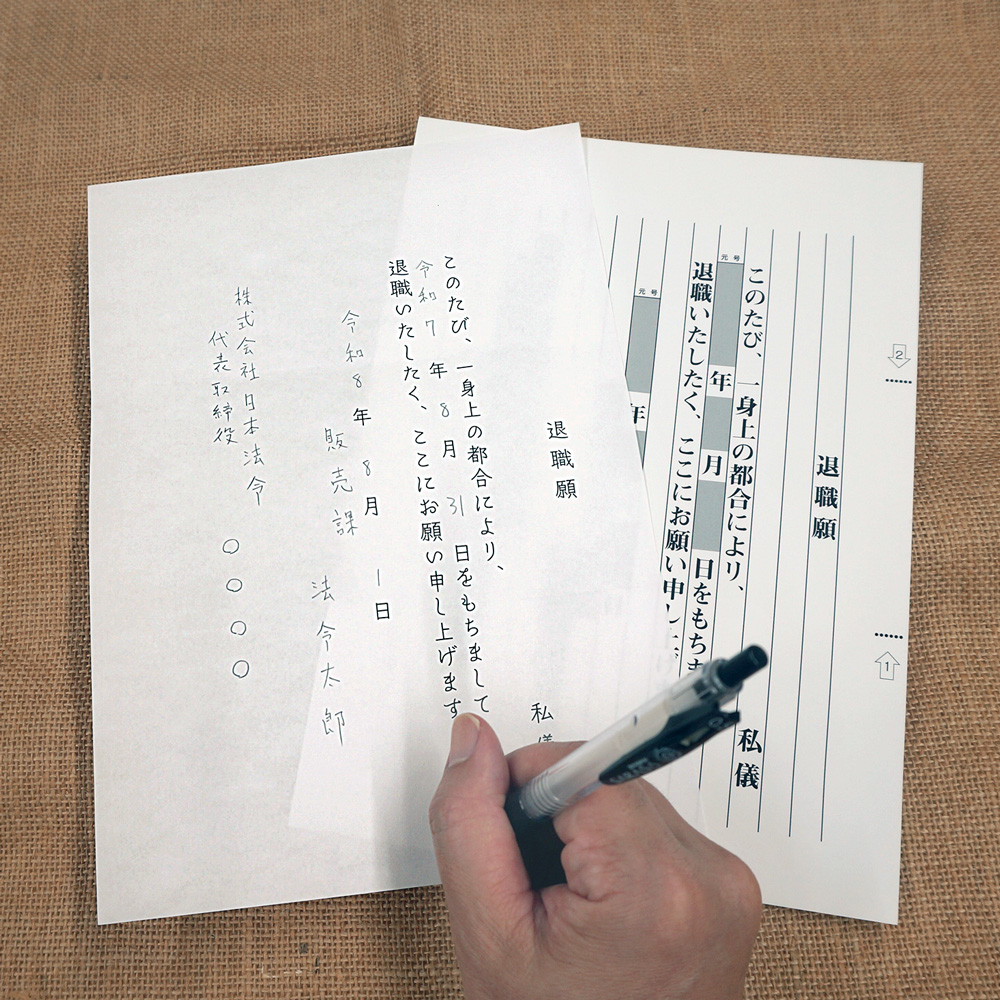 退職願
私儀
このたび、一身上の都合により、
令和7年8月31日をもちまして
退職いたしたく、ここにお願い申し上げます
令和8年8月一日
販売課 法令太郎
株式会社日本法令
代表取締役 〇〇〇〇
退職願
私儀
このたび、一身上の都合により、
元号 年 月 日をもちま
退職いたしたく、ここにお願い申し
元号 年
2
1